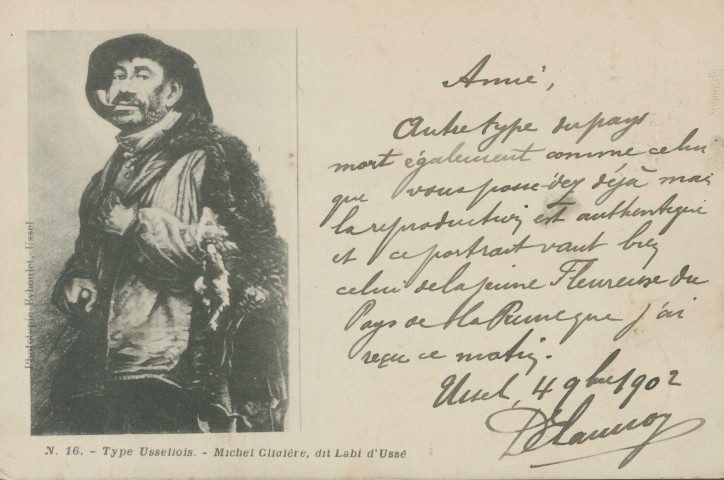 Photoly pie Eyboulet, Ussel
N. 16. - Type Ussellois. - Michel Glioière, dit Labi d'Ussé
Ami,
Autre type du pays
mort également comme celui
que vous possédez déjà mais
la reproduction est authentique
et ce portrait vaut bien
celui de la jeune Fleureuse du
Pays de que j'ai
reçu ce matin.
Ussel, 4 9bre 1902